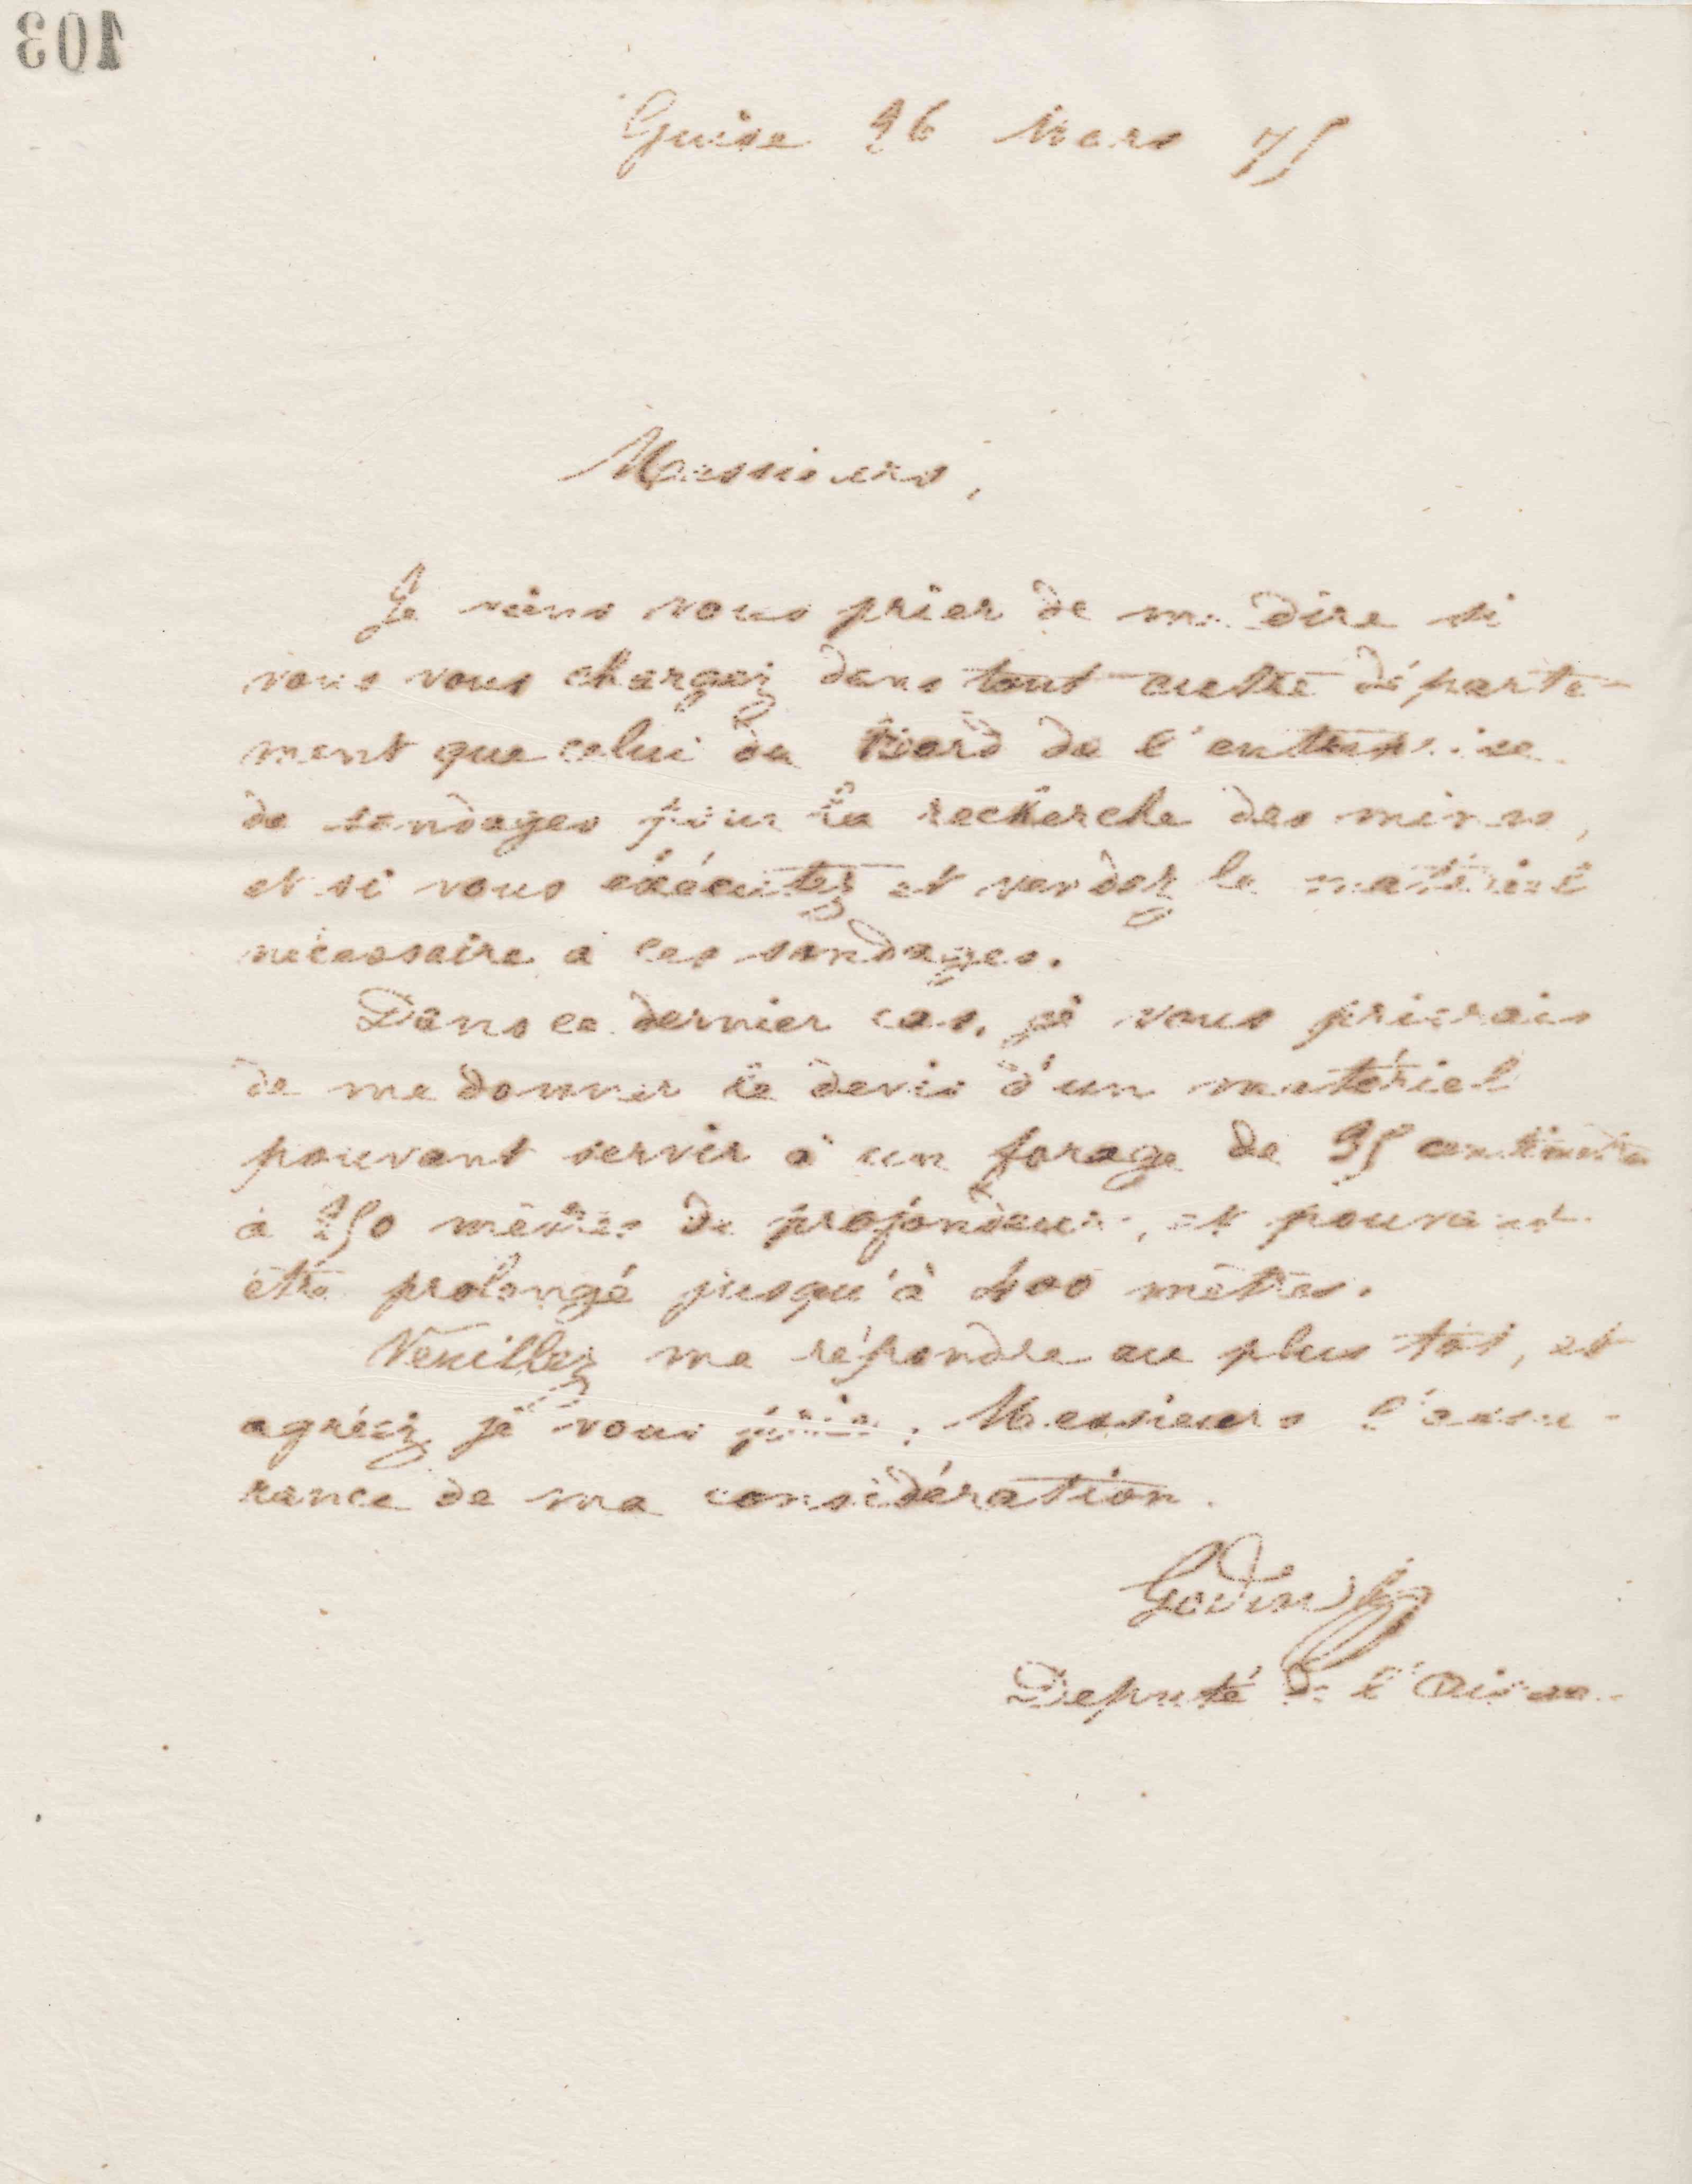 103
Guise 26 Mars 75
Messieurs,
Je viens vous prier de me dire si
vous vous chargez dans tout autre départe-
ment que celui du Nord de l'entreprise
de sondages pour la recherche des mines,
et si vous exécutez et vendez le matériel
nécessaire à ces sondages.
Dans ce dernier cas, je vous prierais
de me donner le devis d'un matériel
pouvant servir à un forage de 25 centimètres
à 250 mètres de profondeur, et pouvant
être prolongé jusqu'à 400 mètres.
Veuillez me répondre au plus tôt, et
agréez je vous prie, Messieurs l'assu-
rance de ma considération.
Godin
Député de l'Aisne